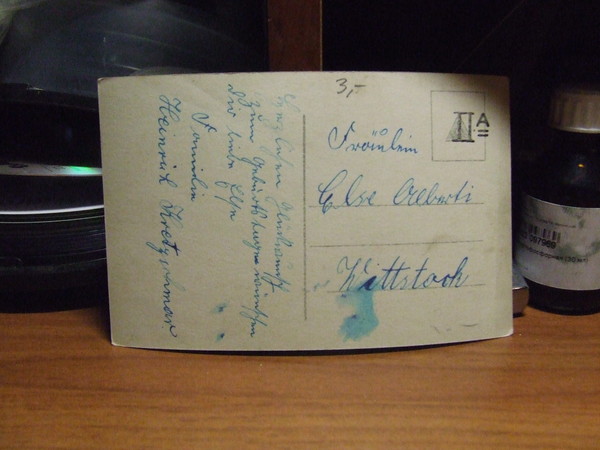 Herzlichen Glückwunsch
zum Geburtstage wünschen
dir liebe Else
Familie
Heinrich Kretzschmar
3,-
A
Fräulein
Else Alberti
Wittstock